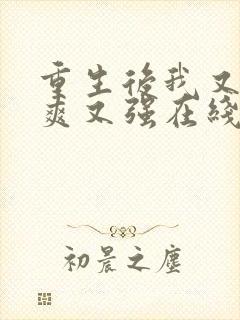 重生後我又
爽又强在綫
初晨之塵